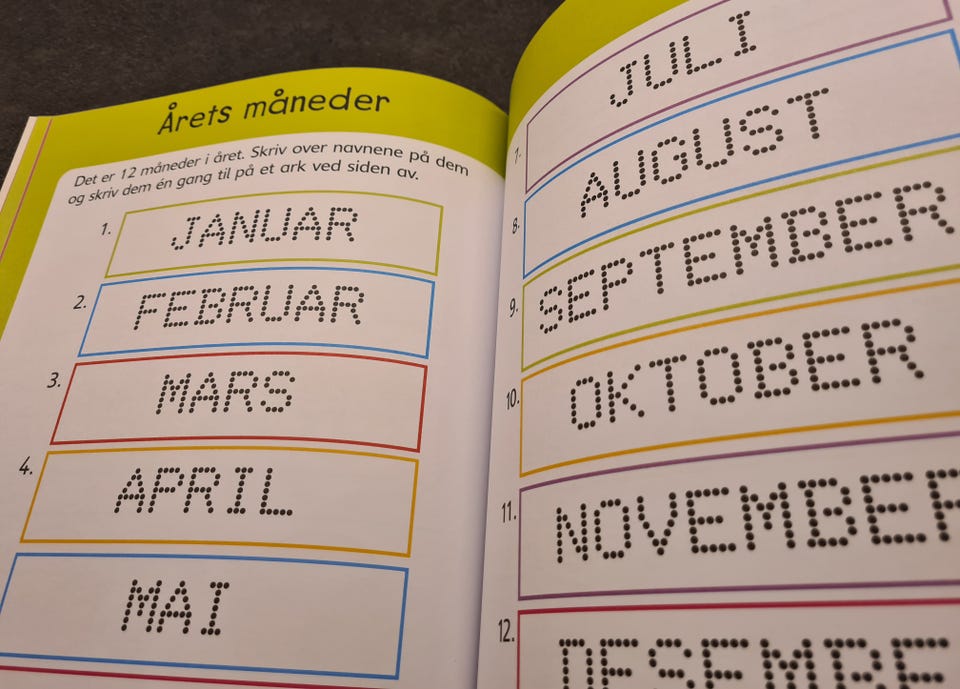 Årets måneder
Det er 12 måneder i året. Skriv over navnene på dem
og skriv dem én gang til på et ark ved siden av.
1. JANUAR
2. FEBRUAR
3. MARS
4. APRIL
MAI
JULI
7.
AUGUST
8.
SEPTEMBER
9.
OKTOBER
10.
11. NOVEMBER
12. DESEMBE